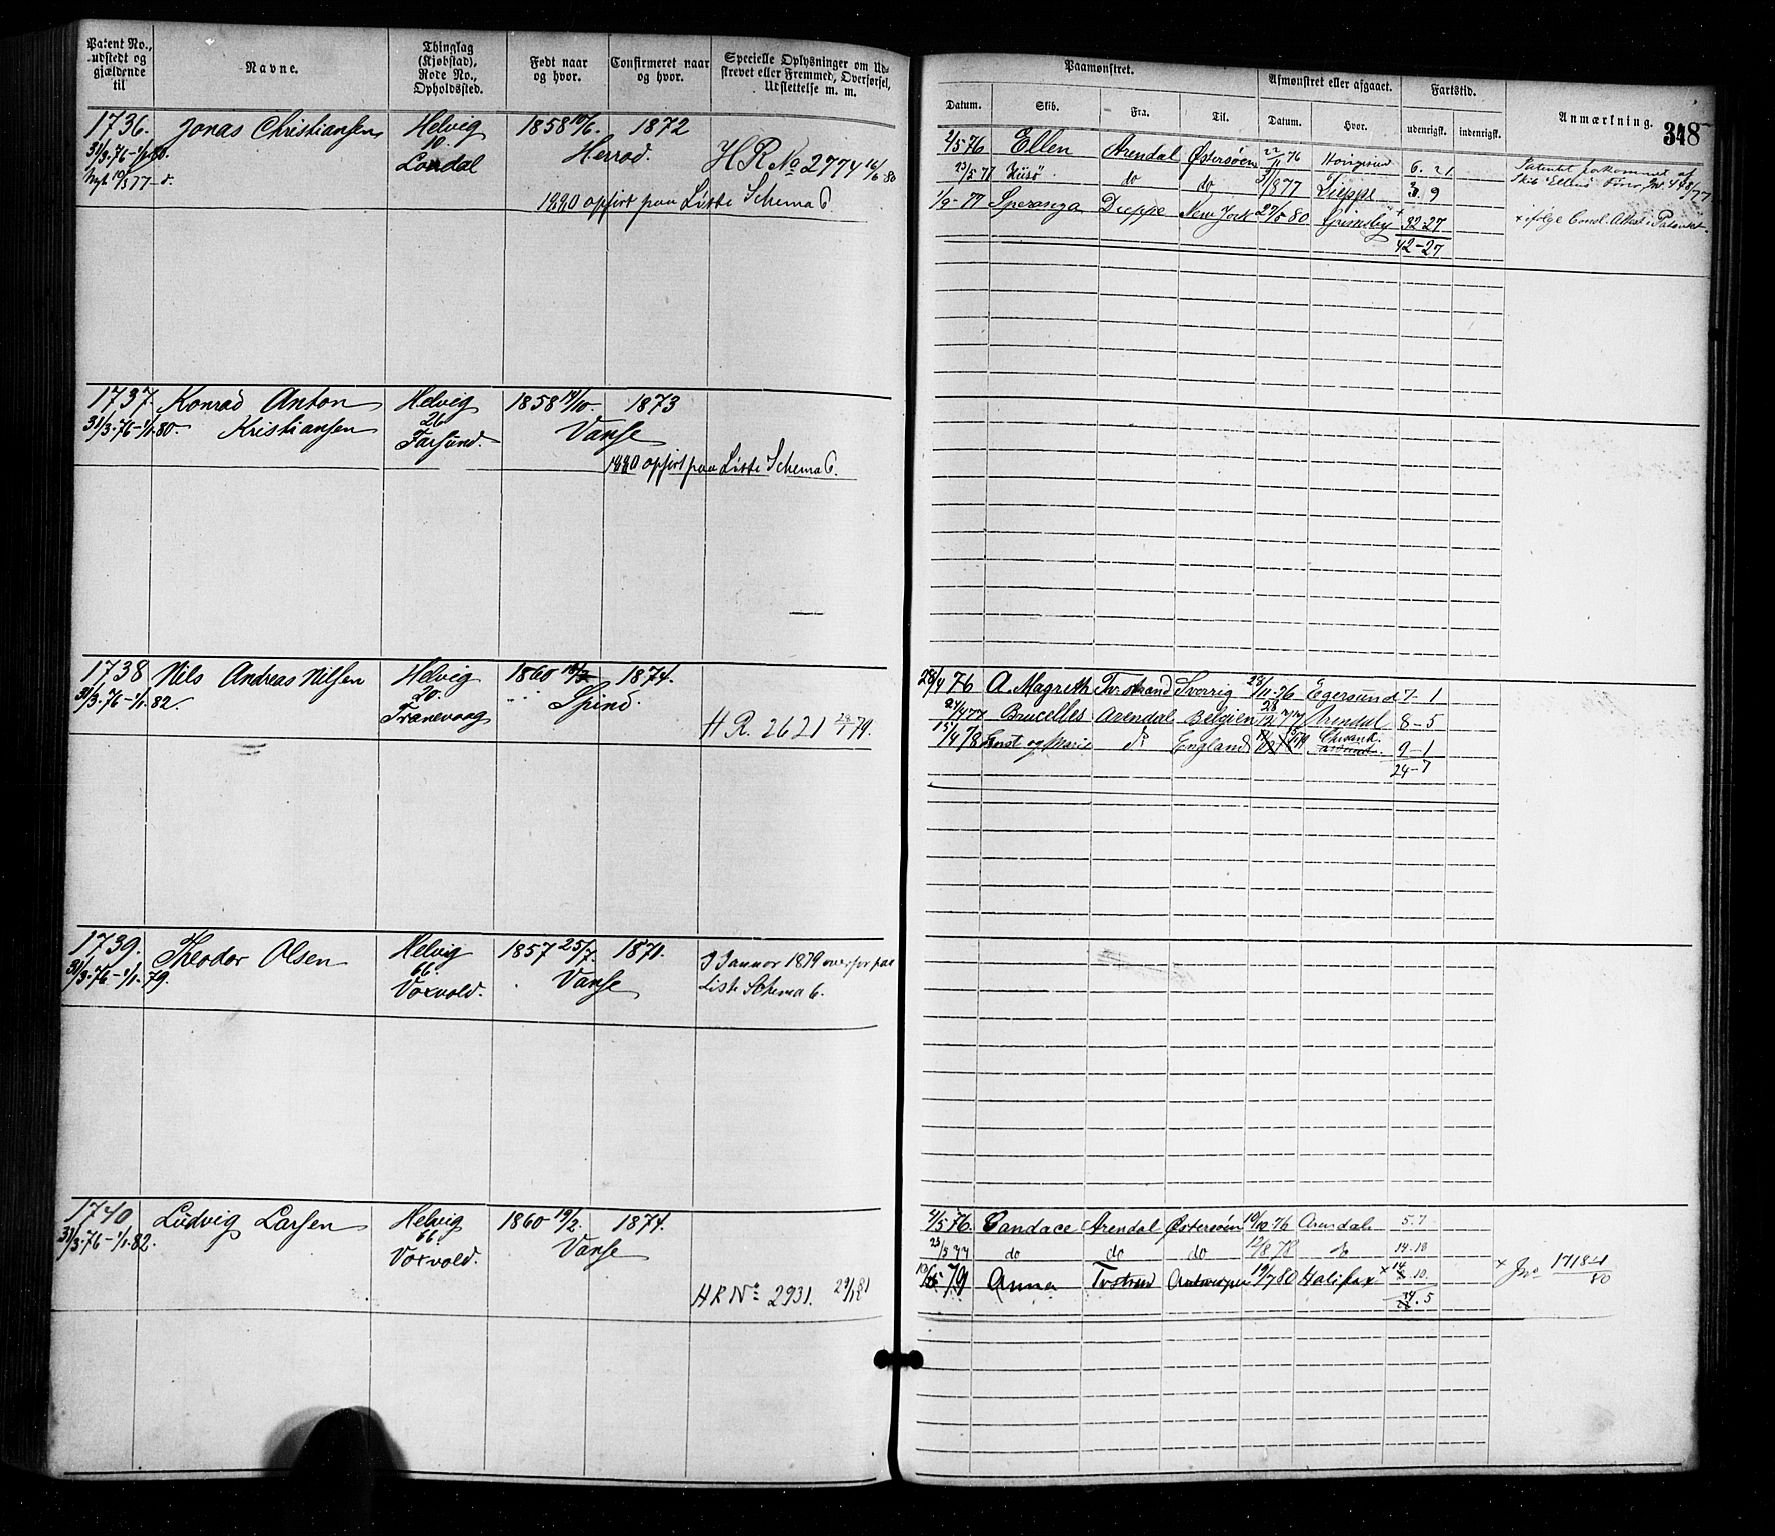 Patent No., udstedt og gjældende til
Navne.
Thinglag (Kjøbstad), Rode No., Opholdssted.
Født naar og hvor.
Confirmeret naar og hvor.
Specielle Oplysninger om Udskrevet eller Fremmed, Overførsel, Udslettelse m. m.
Paamønstret.
Afmønstret eller afgaaet.
Fartstid.
Anmærkning.
348
Datum. Skib. Fra. Til. Datum. Hvor. udenrigsk. indenrigsk.
1736. Jonas Christiansen Helvig 1858 1872
31/3.76-1/1.80. 10. Herrad. H R No 2774 16/6 80
Nyt 19/5 77 d. Londal
1880 opført paa Liste Schema 6.
2/5 76 Ellen Arendal Østersøen 22/11 76 6. 21
23/5 77 do do 31/8 77 Dieppe 3. 9
Patentet forkommet af
Skib "Ellen"
1/9-77 Speranza Dieppe New York 27/5 80 Grimsby + 32-27
42-27
+ ifølge Consl. Attest i Patentet.
1737. Konrad Anton Helvig 1858 1873
31/3.76-1/1.80. Kristiansen 26 Vanse
Farsund.
1880 opført paa Liste Schema 6.
1738 Nils Andreas Nilsen Helvig 1860 1874.
31/3.76-1/1.82. 20. Spind.
Tranevaag H R. 2621 79.
28/4 76 A. Magreth Tvedestrand Sverrig 23/11.76 Egersund 7-1
27/4 77 Brucelles Arendal Belgien 28/12 77 Arendal 8-5
15/4 78 Ernst og Marie do England 9-1
24-7
1739. Theodor Olsen Helvig 1857 25/7. 1871.
31/3.76-1/1.79. 66. Vanse
Voxvold.
3 Januar 1879 overfør paa
Liste Schema 6.
1740 Ludvig Larsen Helvig 1860 19/2. 1874.
31/3.76-1/1.82. 66. Vanse
Voxvold.
H R No 2931.
2/5 76 Candace Arendal Østersøen 19/10 76 Arendal 5.7
23/3 77 do do do 12/8 78 do 14.18
79 Anna Antwerpen 19/7 80 Halifax + 14. 10.
24. 5
+ Jno 1718-4/80